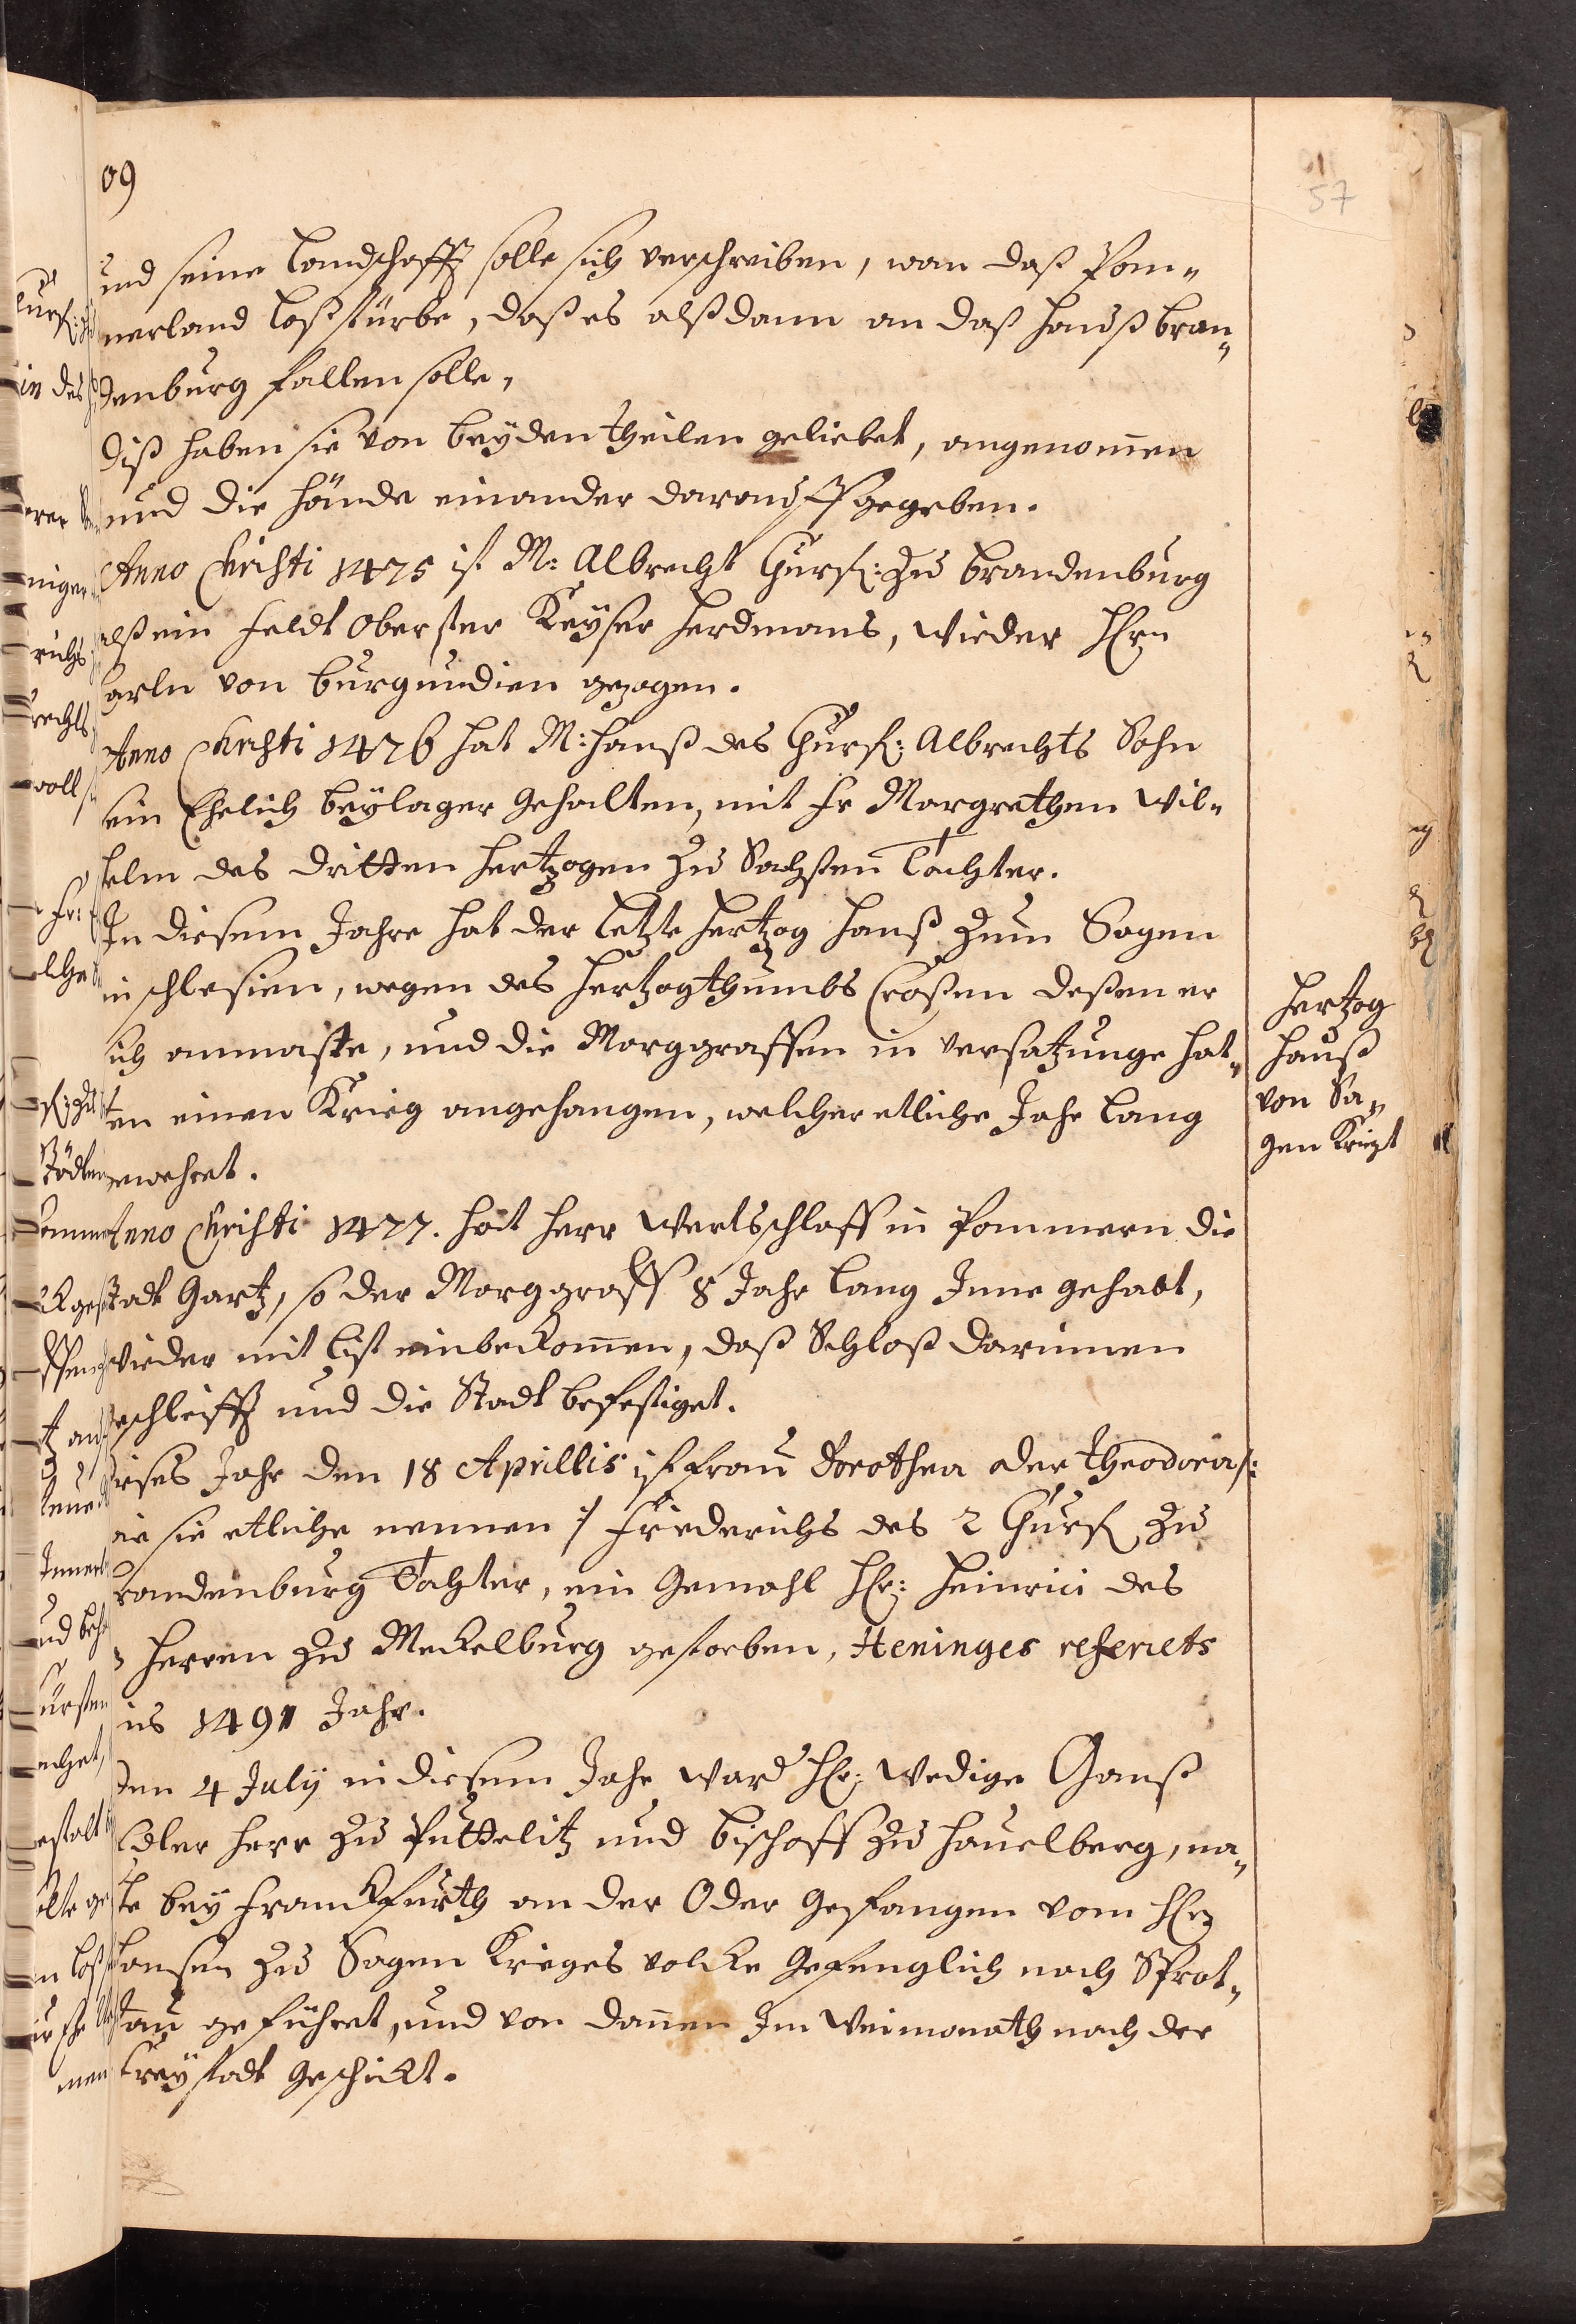 09
57
und seine Landschafft solle sich verschreiben, wan daß Pom-
merland loßstürbe, daß es alßdann an daß Hauß Bran-
denburg fallen solle,
Diß haben sie von beyden theilen geliebet, angenommen
und die Hände einander darauff gegeben.
Anno Christi 1475 ist M: Albrecht Churf: zu Brandenburg
alß ein Feldt Oberster Keyser Ferdinans, wieder Hertz
Carln von Burgundien gezogen.
Anno Christi 1476 hat M: Hanß des Churf: Albrechts Sohn
sein Ehelich beylager gehalten, mit Fr Margrethen Wil-
helm des dritten Hertzogen zu Sachsen Tochter.
In diesem Jahre hat der letzte Hertzog Hanß zum Sagen
in Schlesien, wegen des Hertzogthumbs Croßen deßen er
sich anmaste, und die Marggraffen in versatzunge hat-
ten einen Krieg angefangen, welcher etliche Jahr lang
gewehret.
Hertzog
Hanß
von Sa-
gen Kriegt
Anno Christi 1477. hat Herr Wertschlaff in Pommern die
Stadt Gartz, so der Marggraff 8 Jahr lang Inne gehabt,
wieder mit list einbekommen, daß Schloß darinnen
geschleifft und die Stadt befestiget.
Dieses Jahr den 18 Aprillis ist Frau Dorothea oder Theodora /:
wie sie etliche nennen :/ Friederichs des 2 Churf zu
Brandenburg Tochter, ein Gemahl Hertz: Heinrici des
Herren zu Meckelburg gestorben, Heninges referiets
ins 1491 Jahr.
Den 4 July in diesem Jahr ward Hr: Wedige Ganß
Edler Herr zu Puttelitz und Bischoff zu Hauelberg, na-
he bey Franckfurth an der Oder gefangen vom Hertz
Hansen zu Sagen Krieges volcke gefenglich nach Sprot-
tau geführet, und von dannen Im Weinmonath nach der
Freystadt geschickt.